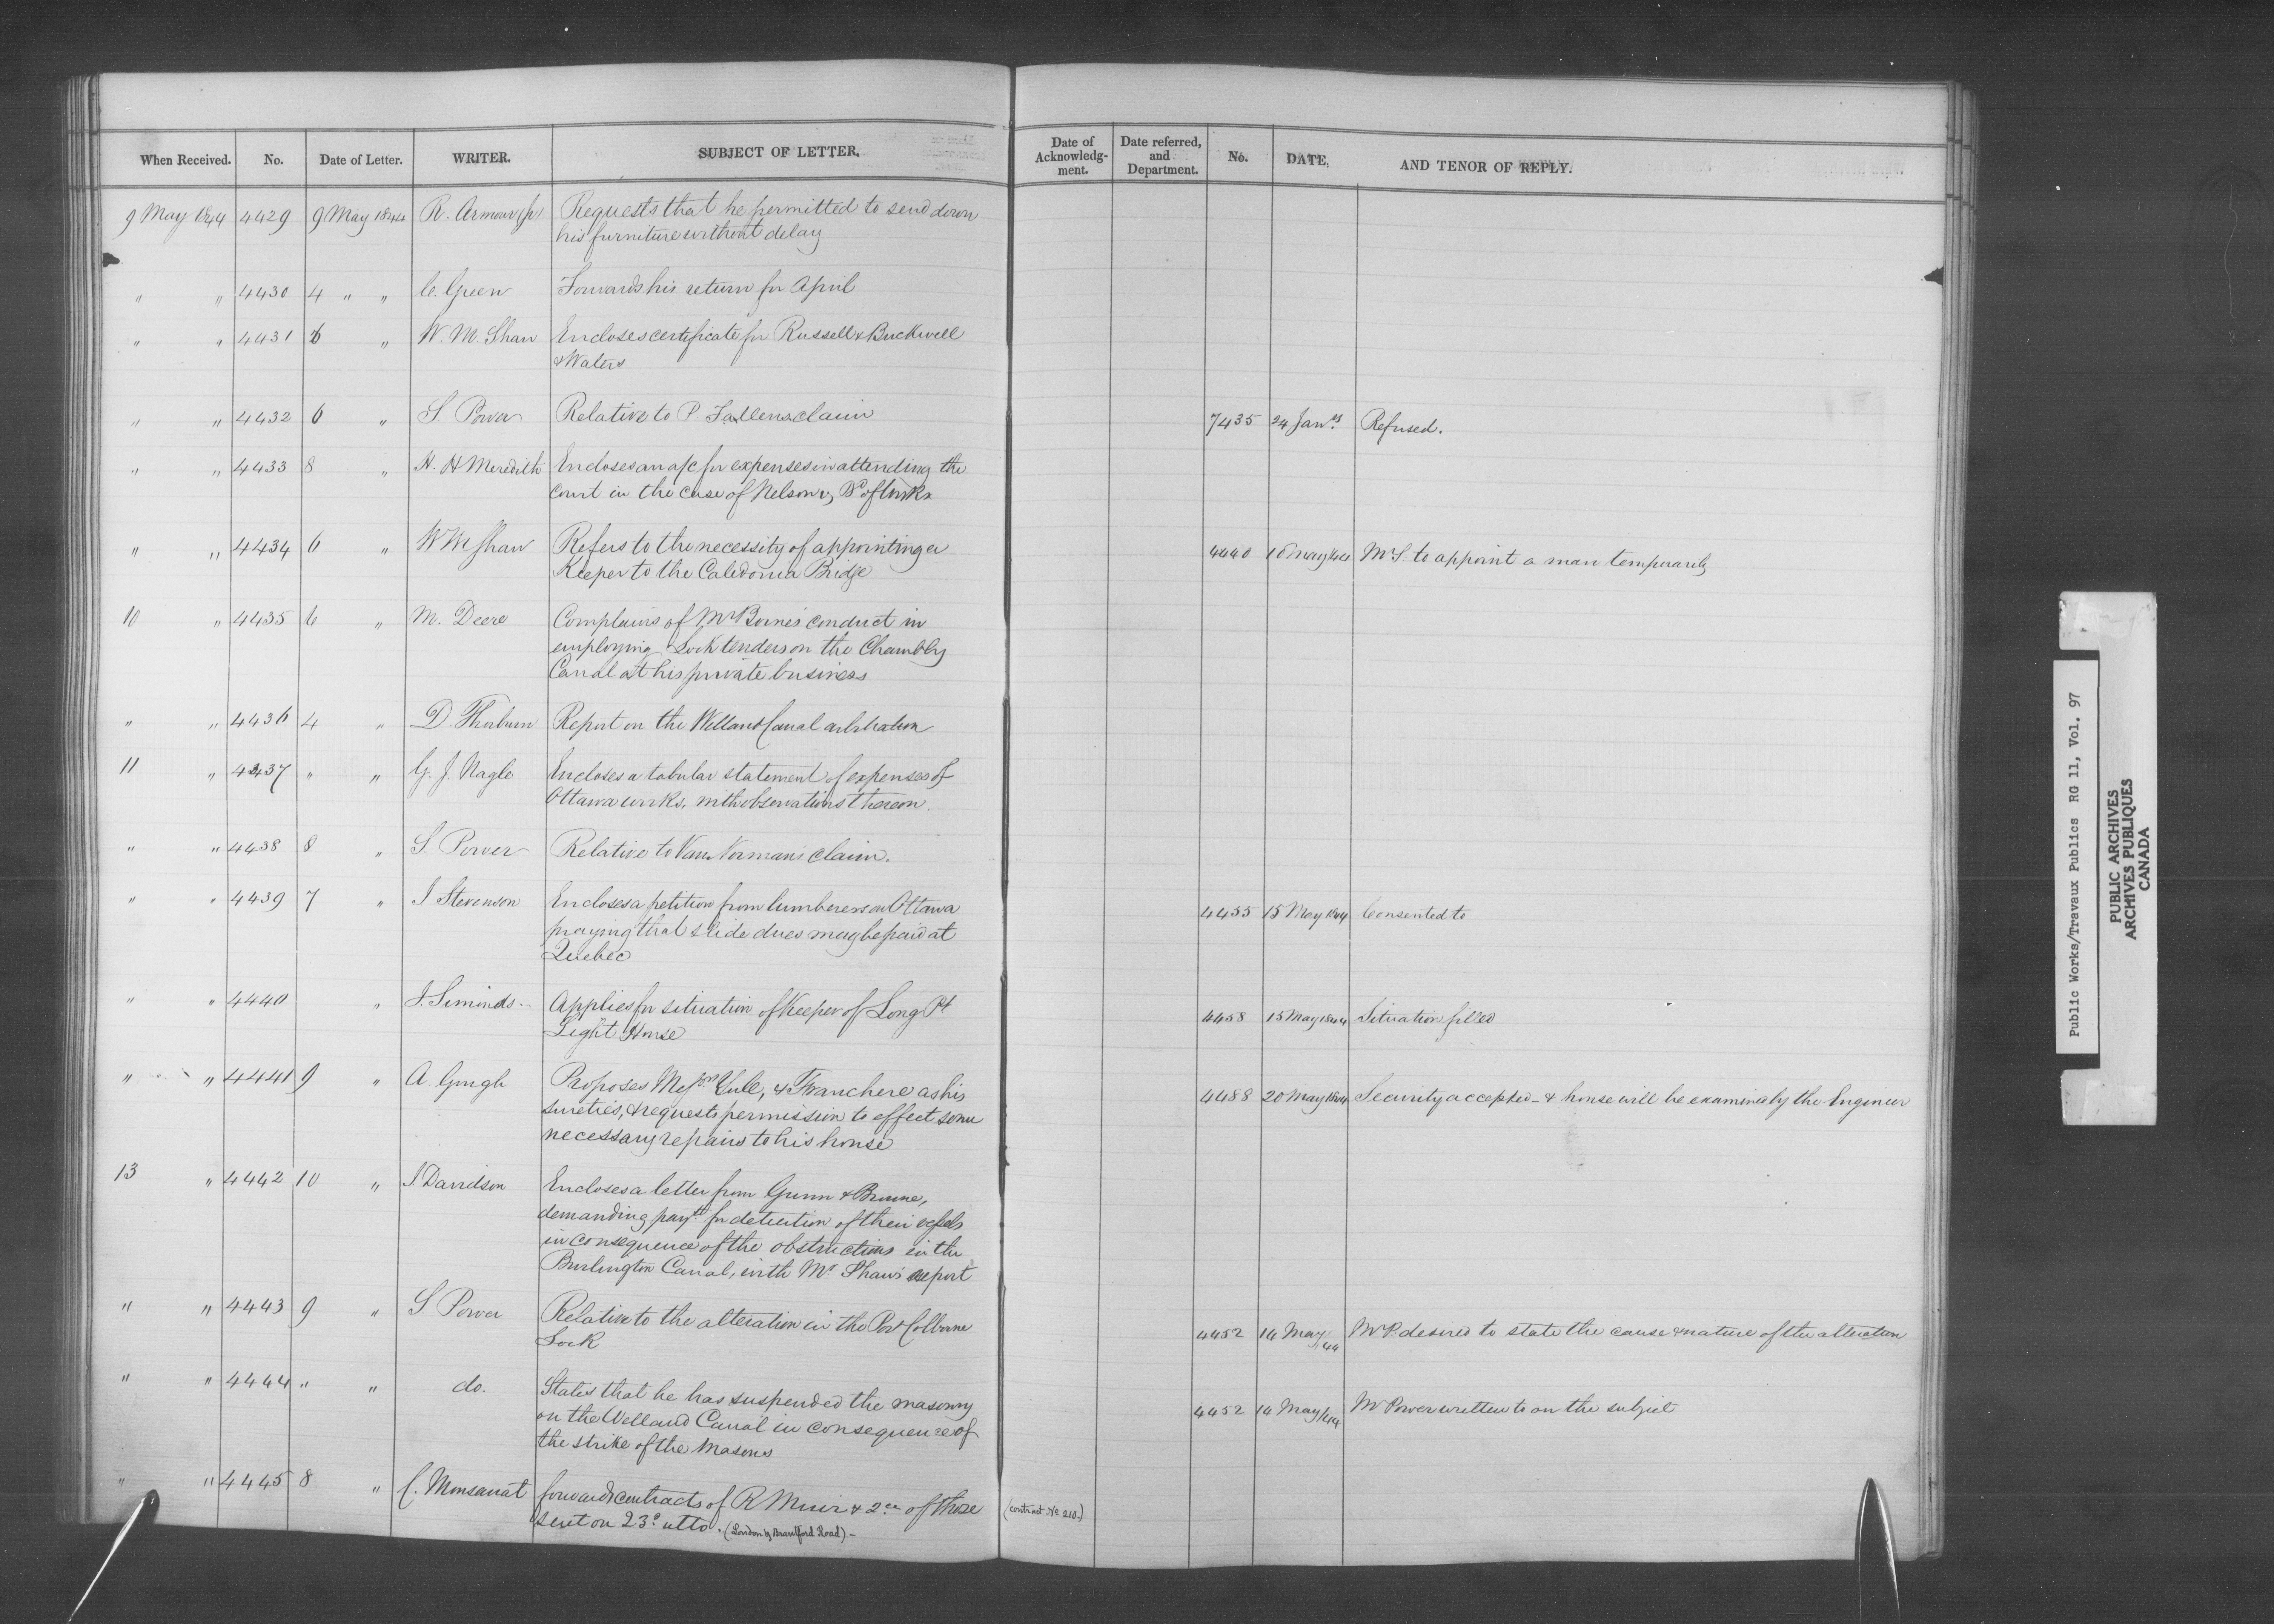 When Received. No. Date of Letter. WRITER. SUBJECT OF LETTER. Date of Acknowledg-ment. Date referred, and Department. No. DATE, AND TENOR OF REPLY.
9 May 1844 4429 9 May 1844 R. Armour jr Requests that he permitted to send down
his furniture without delay
" " 4430 4 " " C. Green Forwards his return for April
" " 4431 6 " W. M. Shaw Encloses certificate for Russell & Buckwell
& Waters
" " 4432 6 " S. Power Relative to P. Fallens claim 7435 24 Refused.
" " 4433 8 " H. H Meredith Encloses an a/c for expenses in attending the
court in the case of Nelson vs Bd of Works
" " 4434 6 " W M Shaw Refers to the necessity of appointing a
Keeper to the Caledonia Bridge 4440 10 May 44 Mr S. to appoint a man temporarily
10 " 4435 6 " M. Deere Complains of Mr conduct in
employing Lock tenders on the Chambly
Canal at his private business
" " 4436 4 " D. Thorburn Report on the Welland Canal arbitration
11 " 4437 " " G. J. Nagle Encloses a tabular statement of expenses of
Ottawa works, with observations thereon.
" " 4438 8 " S. Power Relative to Van Norman's claim.
" " 4439 7 " J Stevenson Encloses a petition from lumberers on Ottawa
praying that slide dues may be paid at
Quebec 4455 15 May 1844 Consented to
" " 4440 " J. Simonds Applies for situation of Keeper of Long Pt
Light House 4458 15 May 1844 Situation filled
" " 4441 9 " A. Gough Proposes Messrs Yule, & Franchere as his
sureties, & requests permission to effect some
necessary repairs to his house 4488 20 May 1844 Security accepted - & house will be examined by the Engineer
13 " 4442 10 " J Davidson Encloses a letter from Gunn & Browne,
demanding payt for detention of their vessels
in consequence of the obstructions in the
Burlington Canal, with Mr Shaw's report
" " 4443 9 " S. Power Relative to the alteration in the Port Colborne
Lock 4452 14 May 44 Mr P. desired to state the cause & nature of the alteration
" " 4444 " " do. States that he has suspended the masonry
on the Welland Canal in consequence of
the strike of the Masons 4452 14 May 44 Mr Power written to on the subject
" " 4445 8 " C. Monsarrat forwards contracts of R Muir & 2ce of those (contract No 210.)
sent on 23d ulto. (London & Brantford Road) -
Public Works/Travaux Publics RG 11, Vol. 97
PUBLIC ARCHIVES
ARCHIVES PUBLIQUES
CANADA